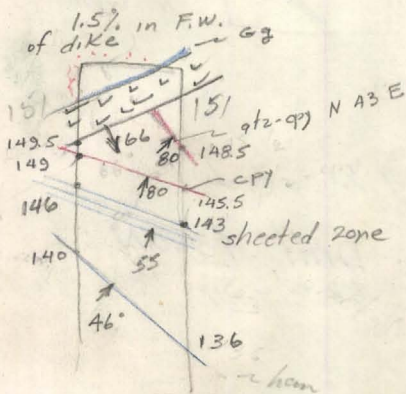 1.5% in F.W.
of dike
Gg
151
151
149.5
66
qtz-cpy N A3 E
149
80
148.5
80
cpy
146
145.5
143
sheeted zone
140
55
46°
136
hem